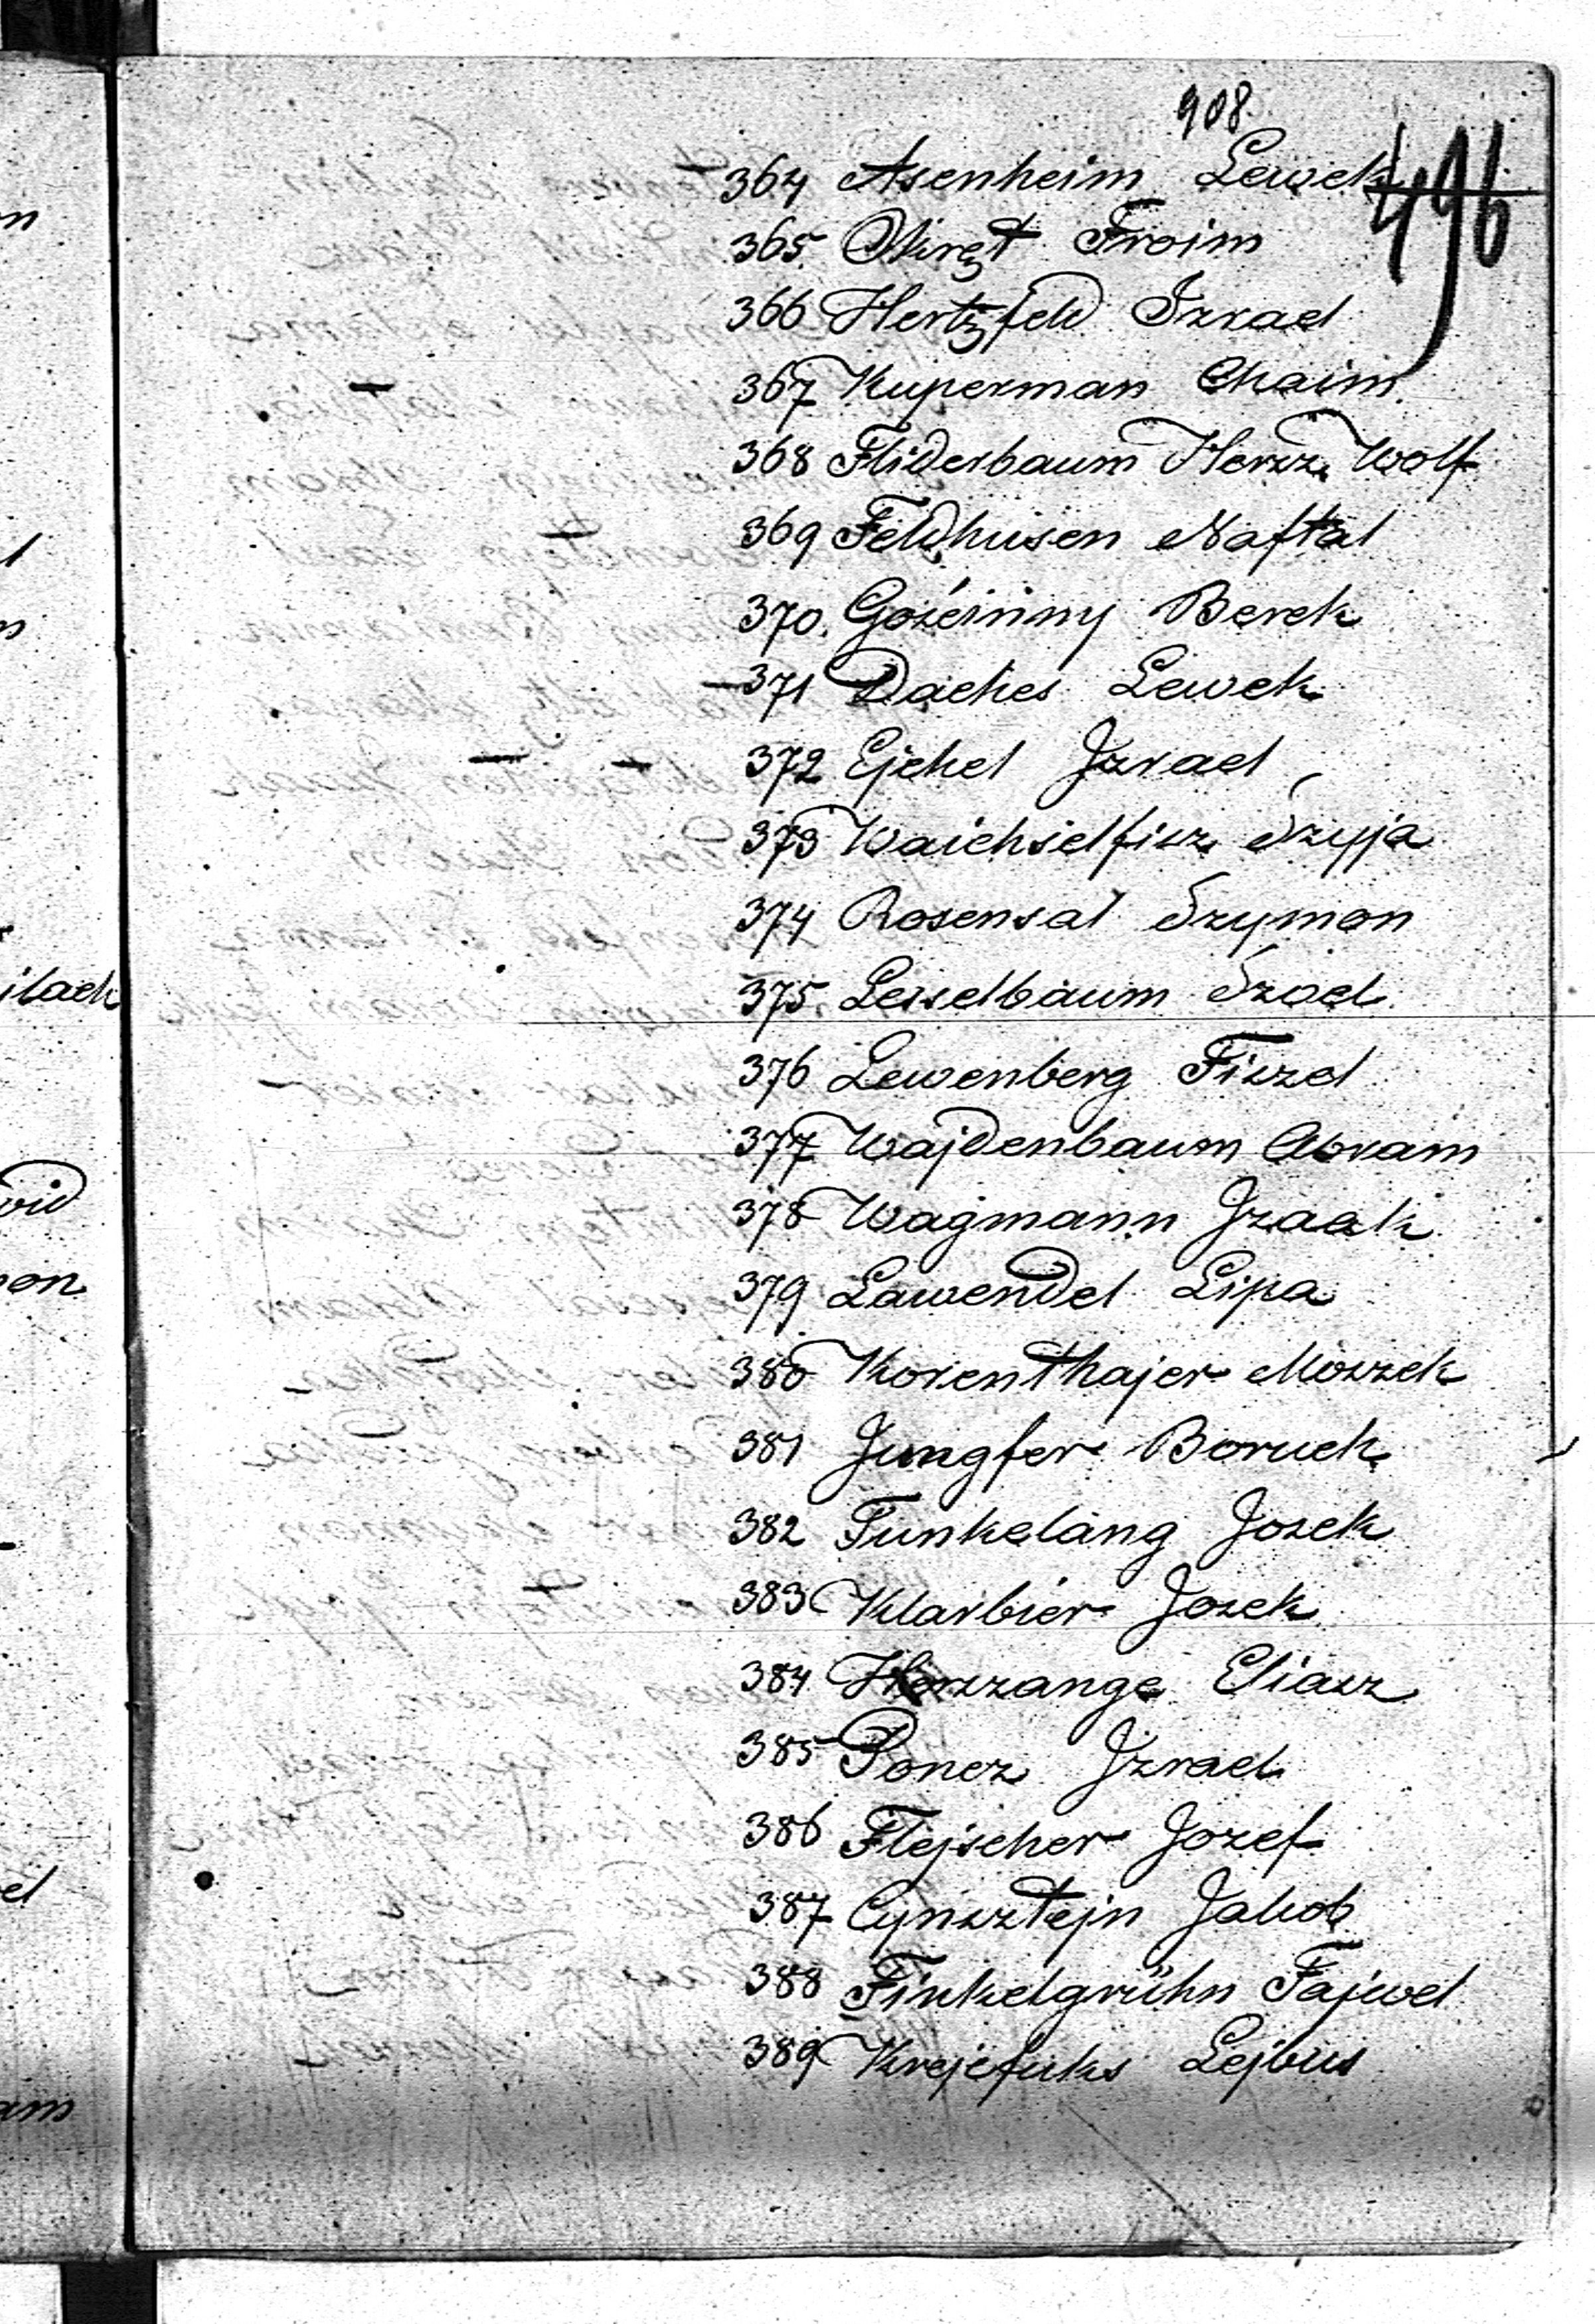 908.
496
364 Asenheim Lewek
365. Okręt Froim
366 Hertzfeld Izrael
367 Kuperman Chaim
368 Fliderbaum Hersz Wolf
369 Feldhusen Naftal
370. Gościnny Berek
371 Daches Lewek
372 Ejchel Izrael
373 Waichselfisz Szyja
374 Rosensal Szymon
375. Lesselbaum Szoel
376 Lewenberg Fiszel
377 Wajdenbaum Abram
378 Wagmann Izaak
379 Lawendel Lipa
380 Korenthajer Moszek
381 Jungfer Boruch
382 Funkelang Josek
383 Klarbier Josek
384 Eliasz
385 Poncz Izrael
386 Flejscher Jozef
387 Cynsztejn Jakob
388 Finkelgrühn Fajwel
389 Krejcfuks Lejbus
ilach
vid
on
el
am